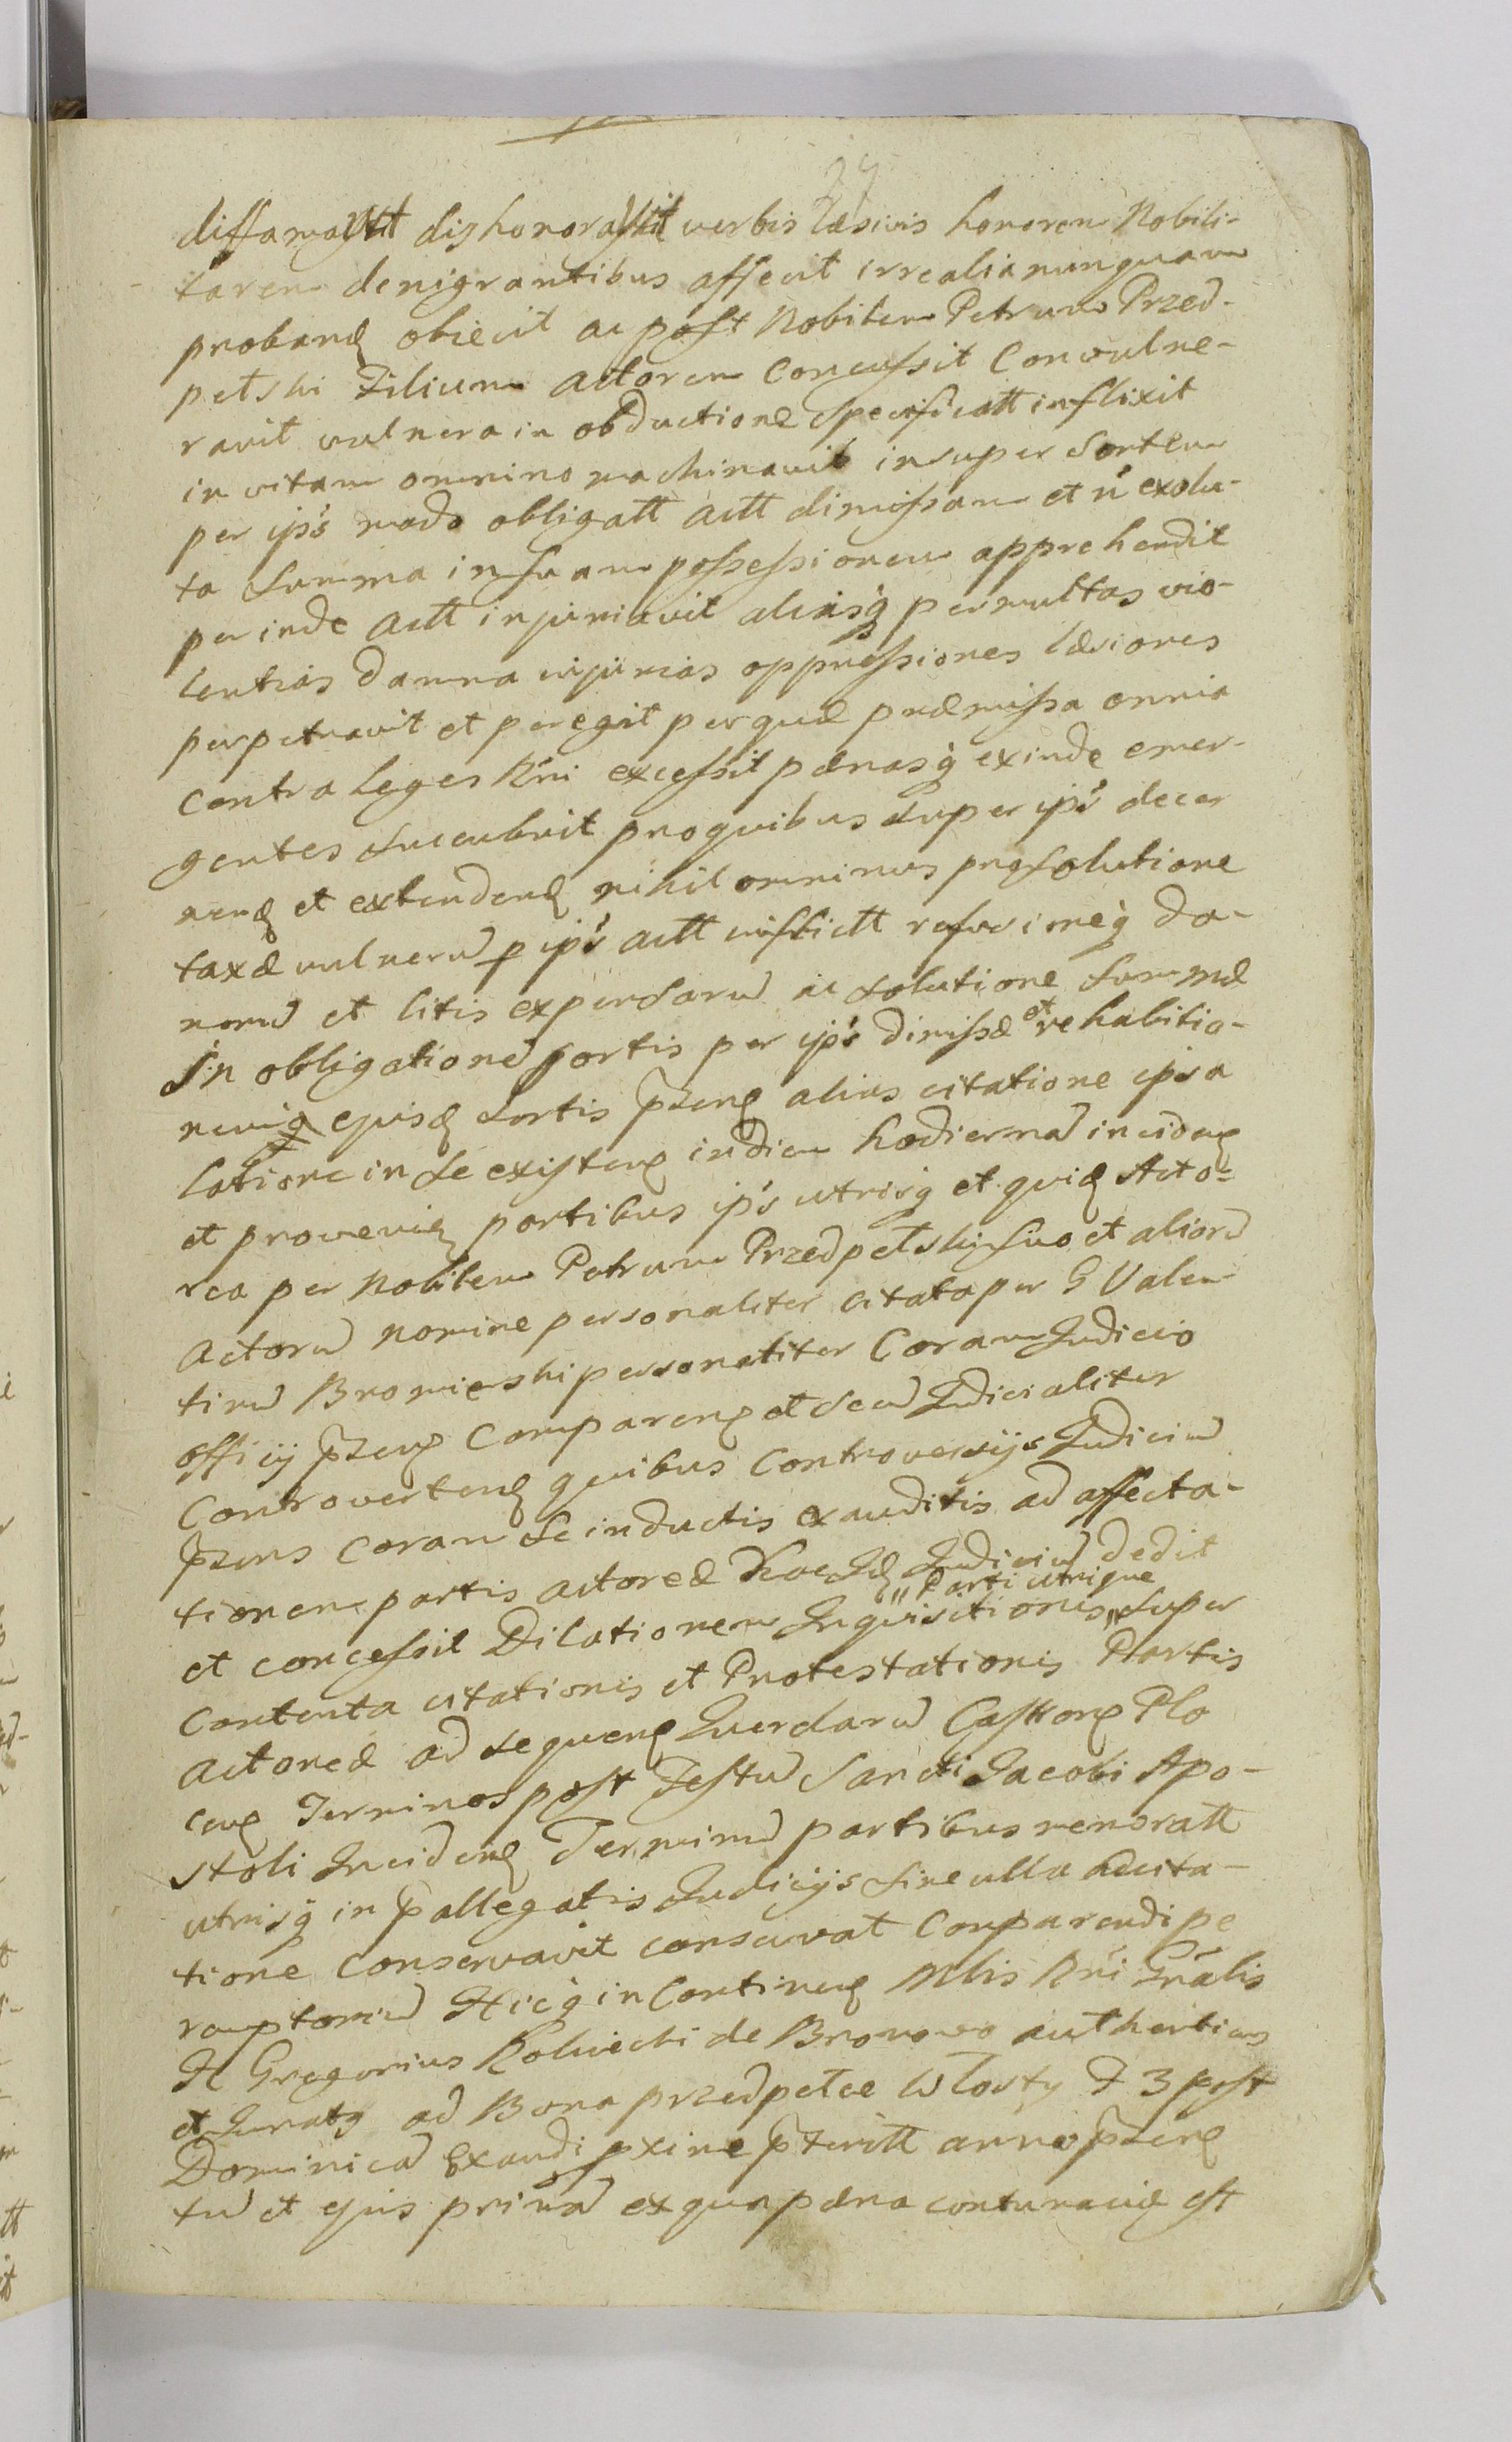 39
diffamavit dishonoravit verbis læsivis honorem Nobili-
tarem denigrantibus affecit irrealia nunquam
proband obiecit ac post Nobilem Petrum Przed-
petski Filium actorem Concussit Convulne-
ravit vulnera in obductione specificatt inflixit
in vitam omnino machinavit insuper sortem
per ips modo obligatt actt dimissam et n exolu-
ta summa in suam possessionem apprehendit
per inde actt injuriavit aliasq permultas vio-
lentias damna injurias oppressiones læsiones
perpetravit et peregit per quæ præmissa omnia
contra leges Rni excessit pænasq exinde emer-
gentes succubuit pro quibus super ips decer
nend et extendend nihilominus pro solutione
taxæ vulnerū p ips actt inflictt refusioneq da-
norū et litis expensarū ac solutione summæ
in obligationē sortis per ips dimissæ et rehabitio-
nemq ejusd sortis pzeng alias citatione ipsa
latiore in se existeng in diem hodiernā incideng
et provenien partibus ips utrisq et quid Acto-
rea per Nobilem Petrum Przedpetski suo et aliorū
actorū nomine personaliter citata per G Valen-
tinū Bromierski personaliter Coram Judicio
officij pzeng Compareng et secū Judicialiter
Controverteng quibus Controversijs Judiciū
pzens coram se inductis exauditis ad affecta-
tionem partis actoreæ Judiciū dedit
et concessit Dilationem Inquisitionis "Parti utrique" super
Contenta citationis et Protestationis Partis
actoreæ ad sequeng Querelarū Castreng Plo
ceng Terminos post Festū Sancti Jacobi Apo-
stoli Incideng Terminū partibus memoratt
utrisq in pallegatis Judicijs sine ulla adcita-
tione conservavit conservat Comparendi pe
remptoriū Hicq in Contineng Mlis Rni Gnalis
H Gregorius de Bronowo authenticus
et Juratg ad Bona przedpełce Włosty F 3 post
Dominicā Exaudi pxime pteritt anno pzeng
tū et ejus primā ex qua pæna contumaciæ est